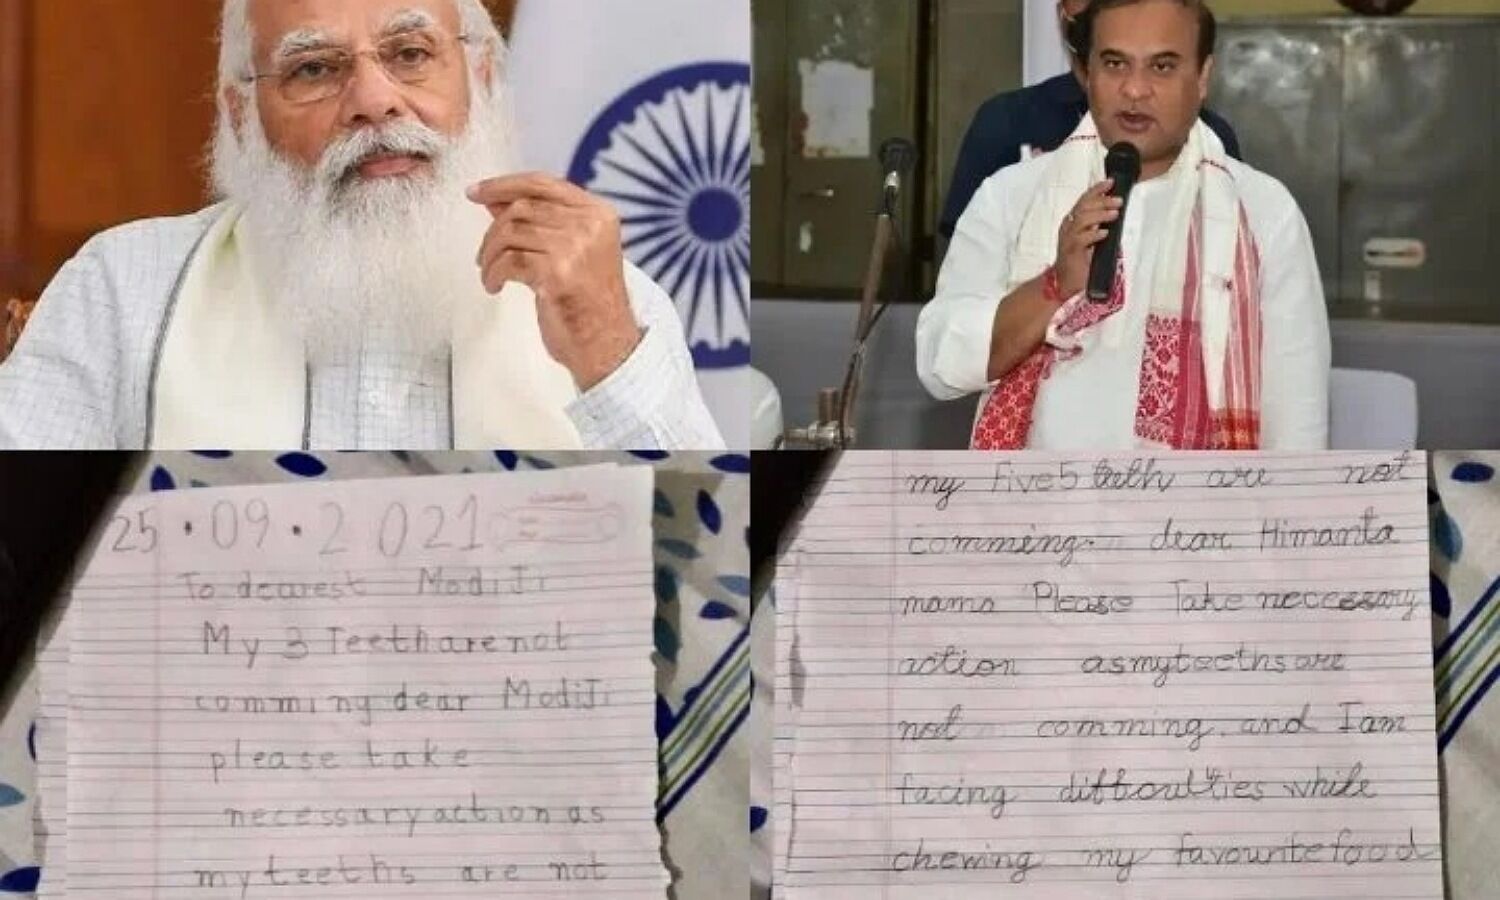 25.09.2021
To dearest ModiJi
My 3 Teeth are not
comming dear ModiJi
please take
necessary action as
my teeths are not
my Five 5 teeth are not
comming. dear Himanta
mama Please Take necessary
action as my teeths are
not comming. and I am
facing difficulties while
chewing my favourite food